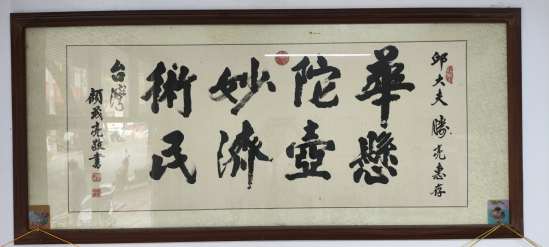 邱大夫勝亮惠存
華懸
陀壺
妙濟
術民
台灣
顧茂亮敬書